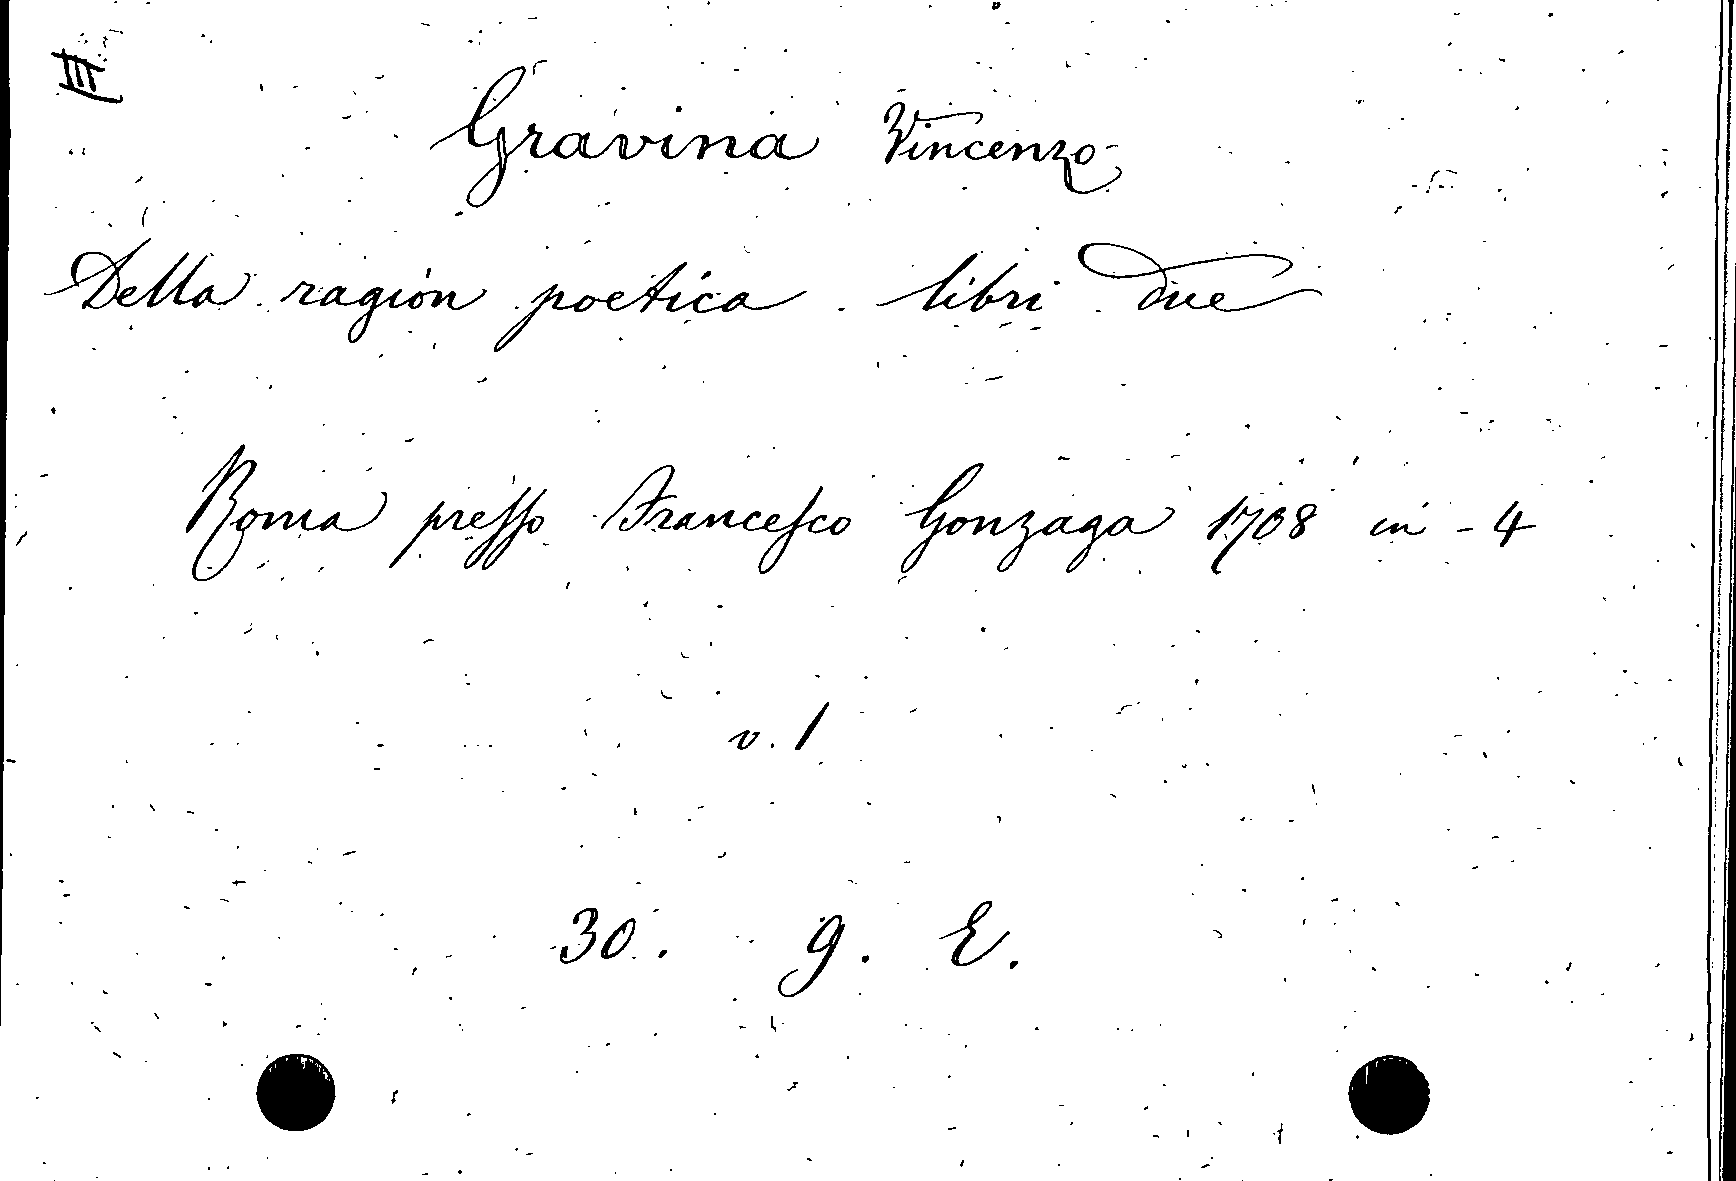 III
Gravina Vincenzo
Della ragion poetica libri due
Roma presso Francesco Gonzaga 1708 in-4
v. 1
30. 9. E.